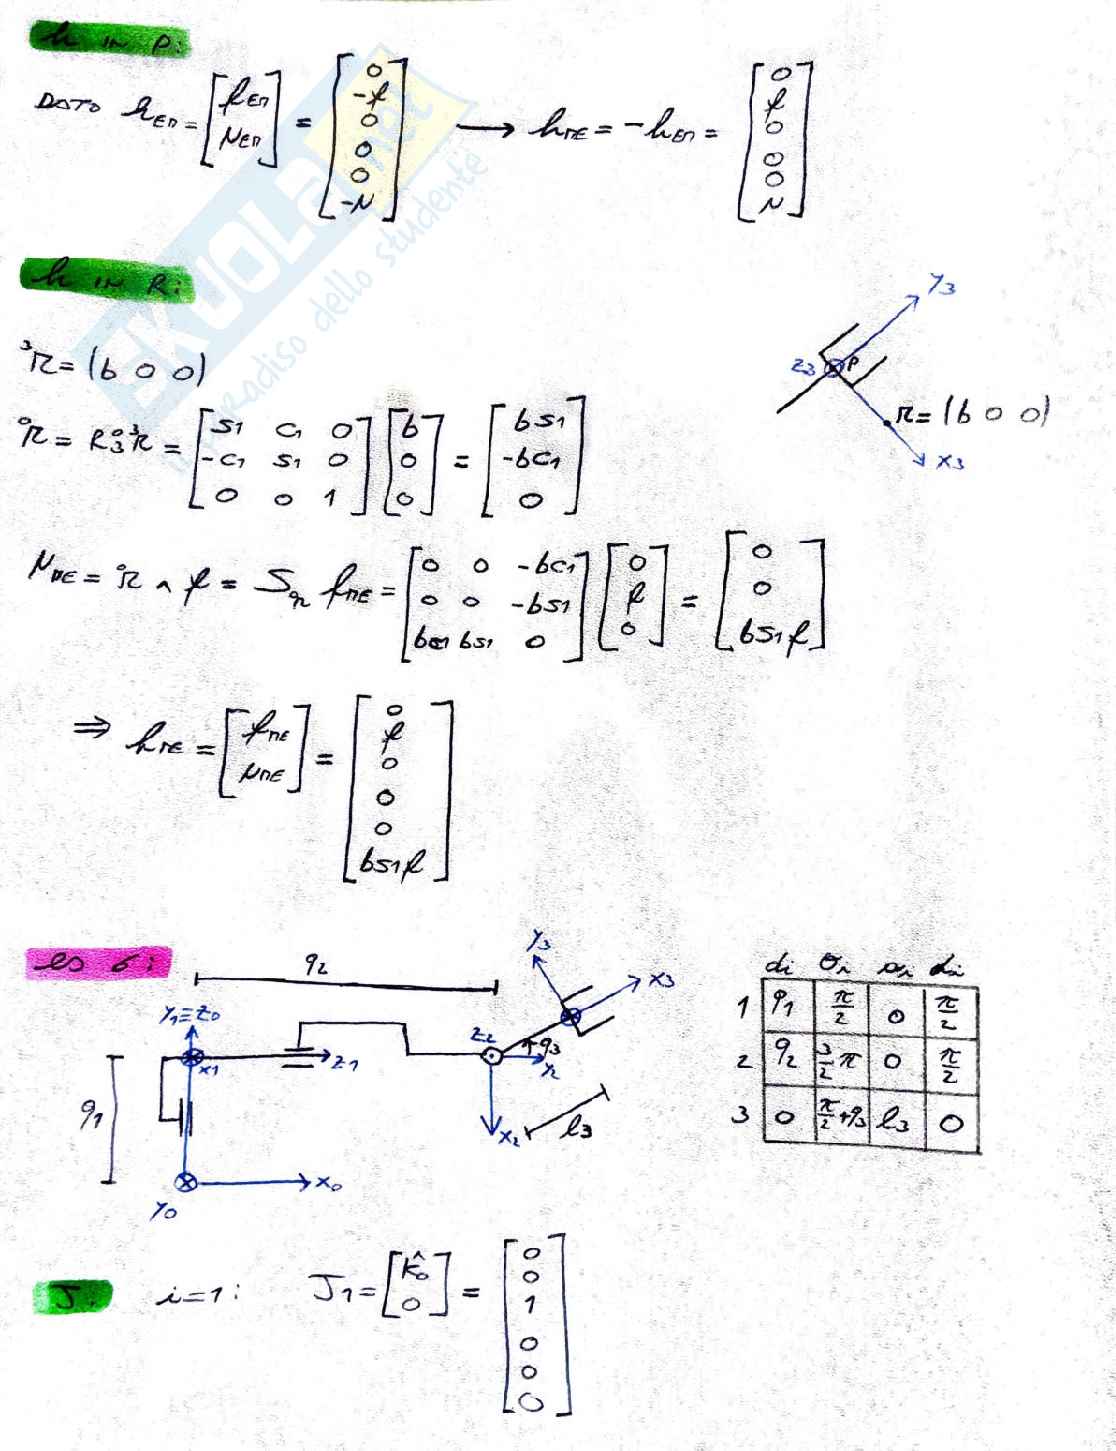 h in P:
DATO h_EM = [f_EM μ_EM] = [0 -f 0 0 0 -μ] → h_ME = -h_EM = [0 f 0 0 0 μ]
SKUOLA.net
paradiso dello studente
h in R:
y3
z3 P
r = (b 0 0)
x3
³r = (b 0 0)
⁰r = R₃⁰ ³r = [s1 c1 0; -c1 s1 0; 0 0 1] [b 0 0] = [bs1 -bc1 0]
μ_ME = ⁰r ∧ f = S_r f_ME = [0 0 -bc1; 0 0 -bs1; bc1 bs1 0] [0 f 0] = [0 0 bs1f]
⇒ h_ME = [f_ME μ_ME] = [0 f 0 0 0 bs1f]
es 6:
q2
y3
x3
y1≡z0
x1
z1
z2
q3
y2
q1
x2
l3
y0
x0
di θi ai αi
1 q1 π/2 0 π/2
2 q2 3/2π 0 π/2
3 0 π/2+q3 l3 0
J: i=1: J1 = [k̂0 0] = [0 0 1 0 0 0]